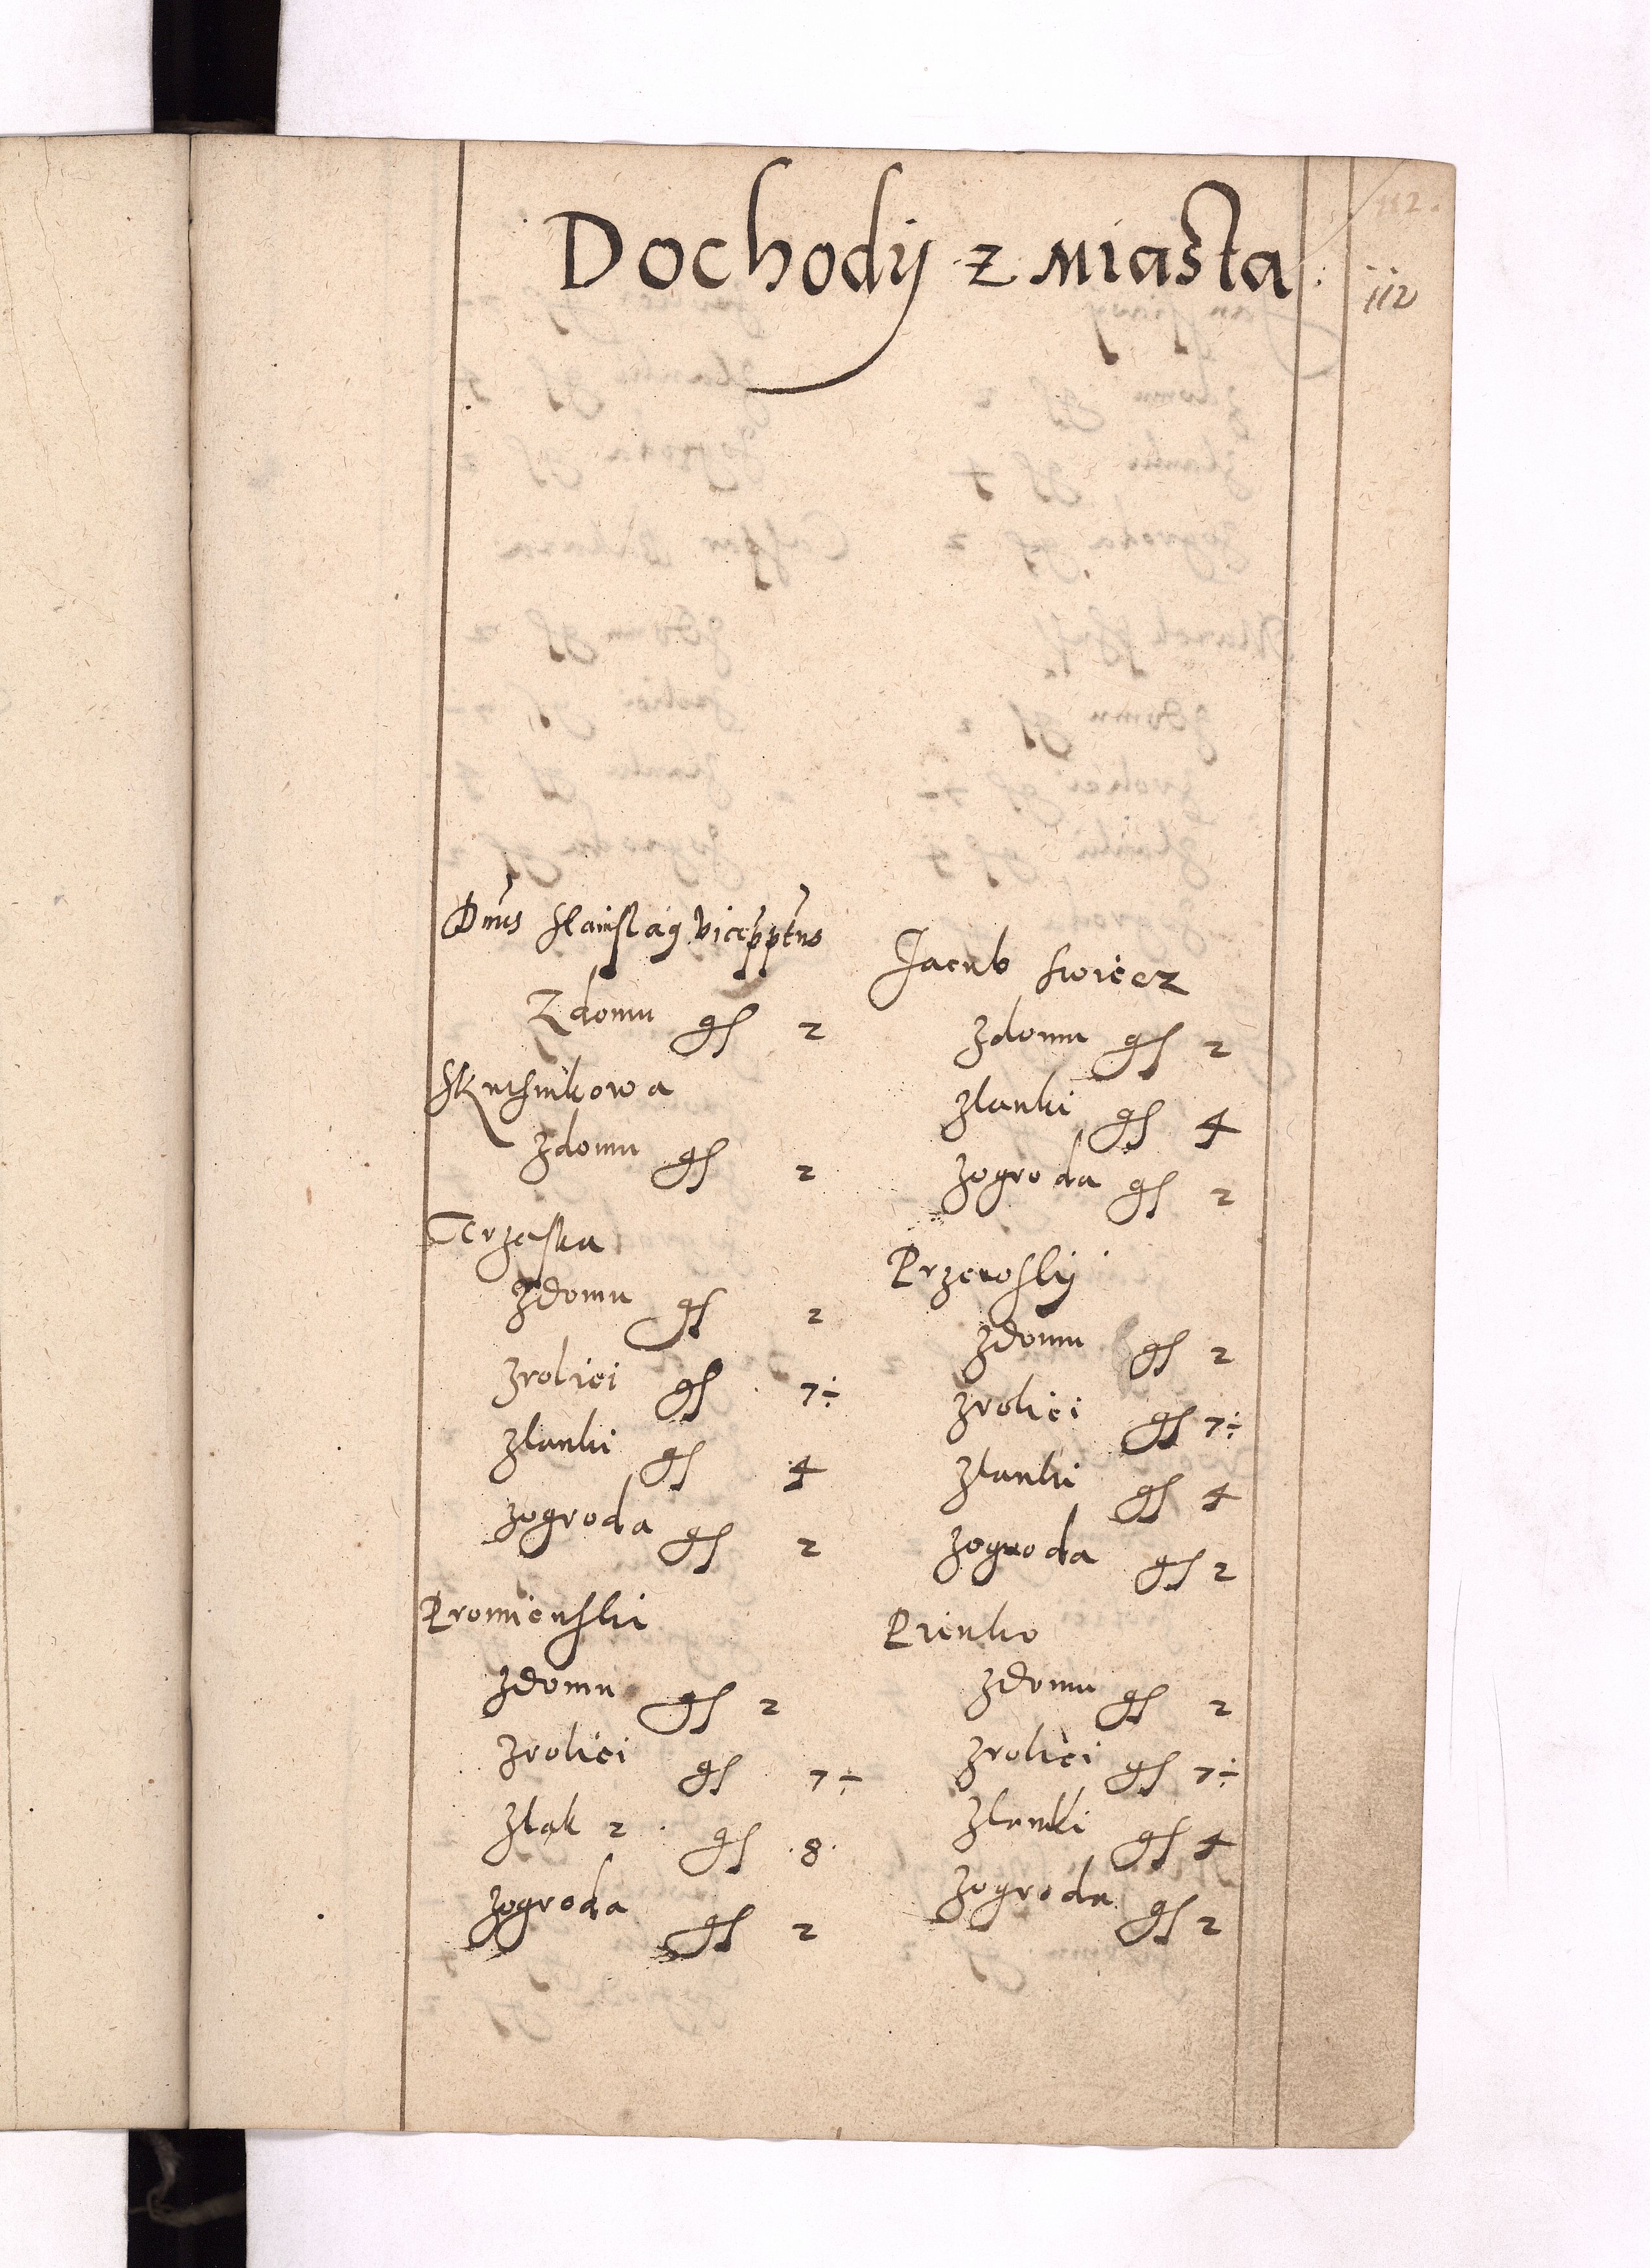 Dochody z miasta
112.
112
Dnus Stanislaus vicepptus
Z domu gs 2
Skuthnikowa
zdomu gs 2
Terzeska
zdomu gs 2
zroliei gs 7÷
zlanki gs 4
zogroda gs 2
Promienski
zdomu gs 2
zroliei gs 7÷
zlak 2 gs 8
zogroda gs 2
Jacub swiecz
zdomu gs 2
zlanki gs 4
zogroda gs 2
Przeroslÿ
zdomu gs 2
zroliei gs 7÷
zlanki gs 4
zogroda gs 2
Pienko
zdomu gs 2
zroliei gs 7÷
zlanki gs 4
zogroda gs 2